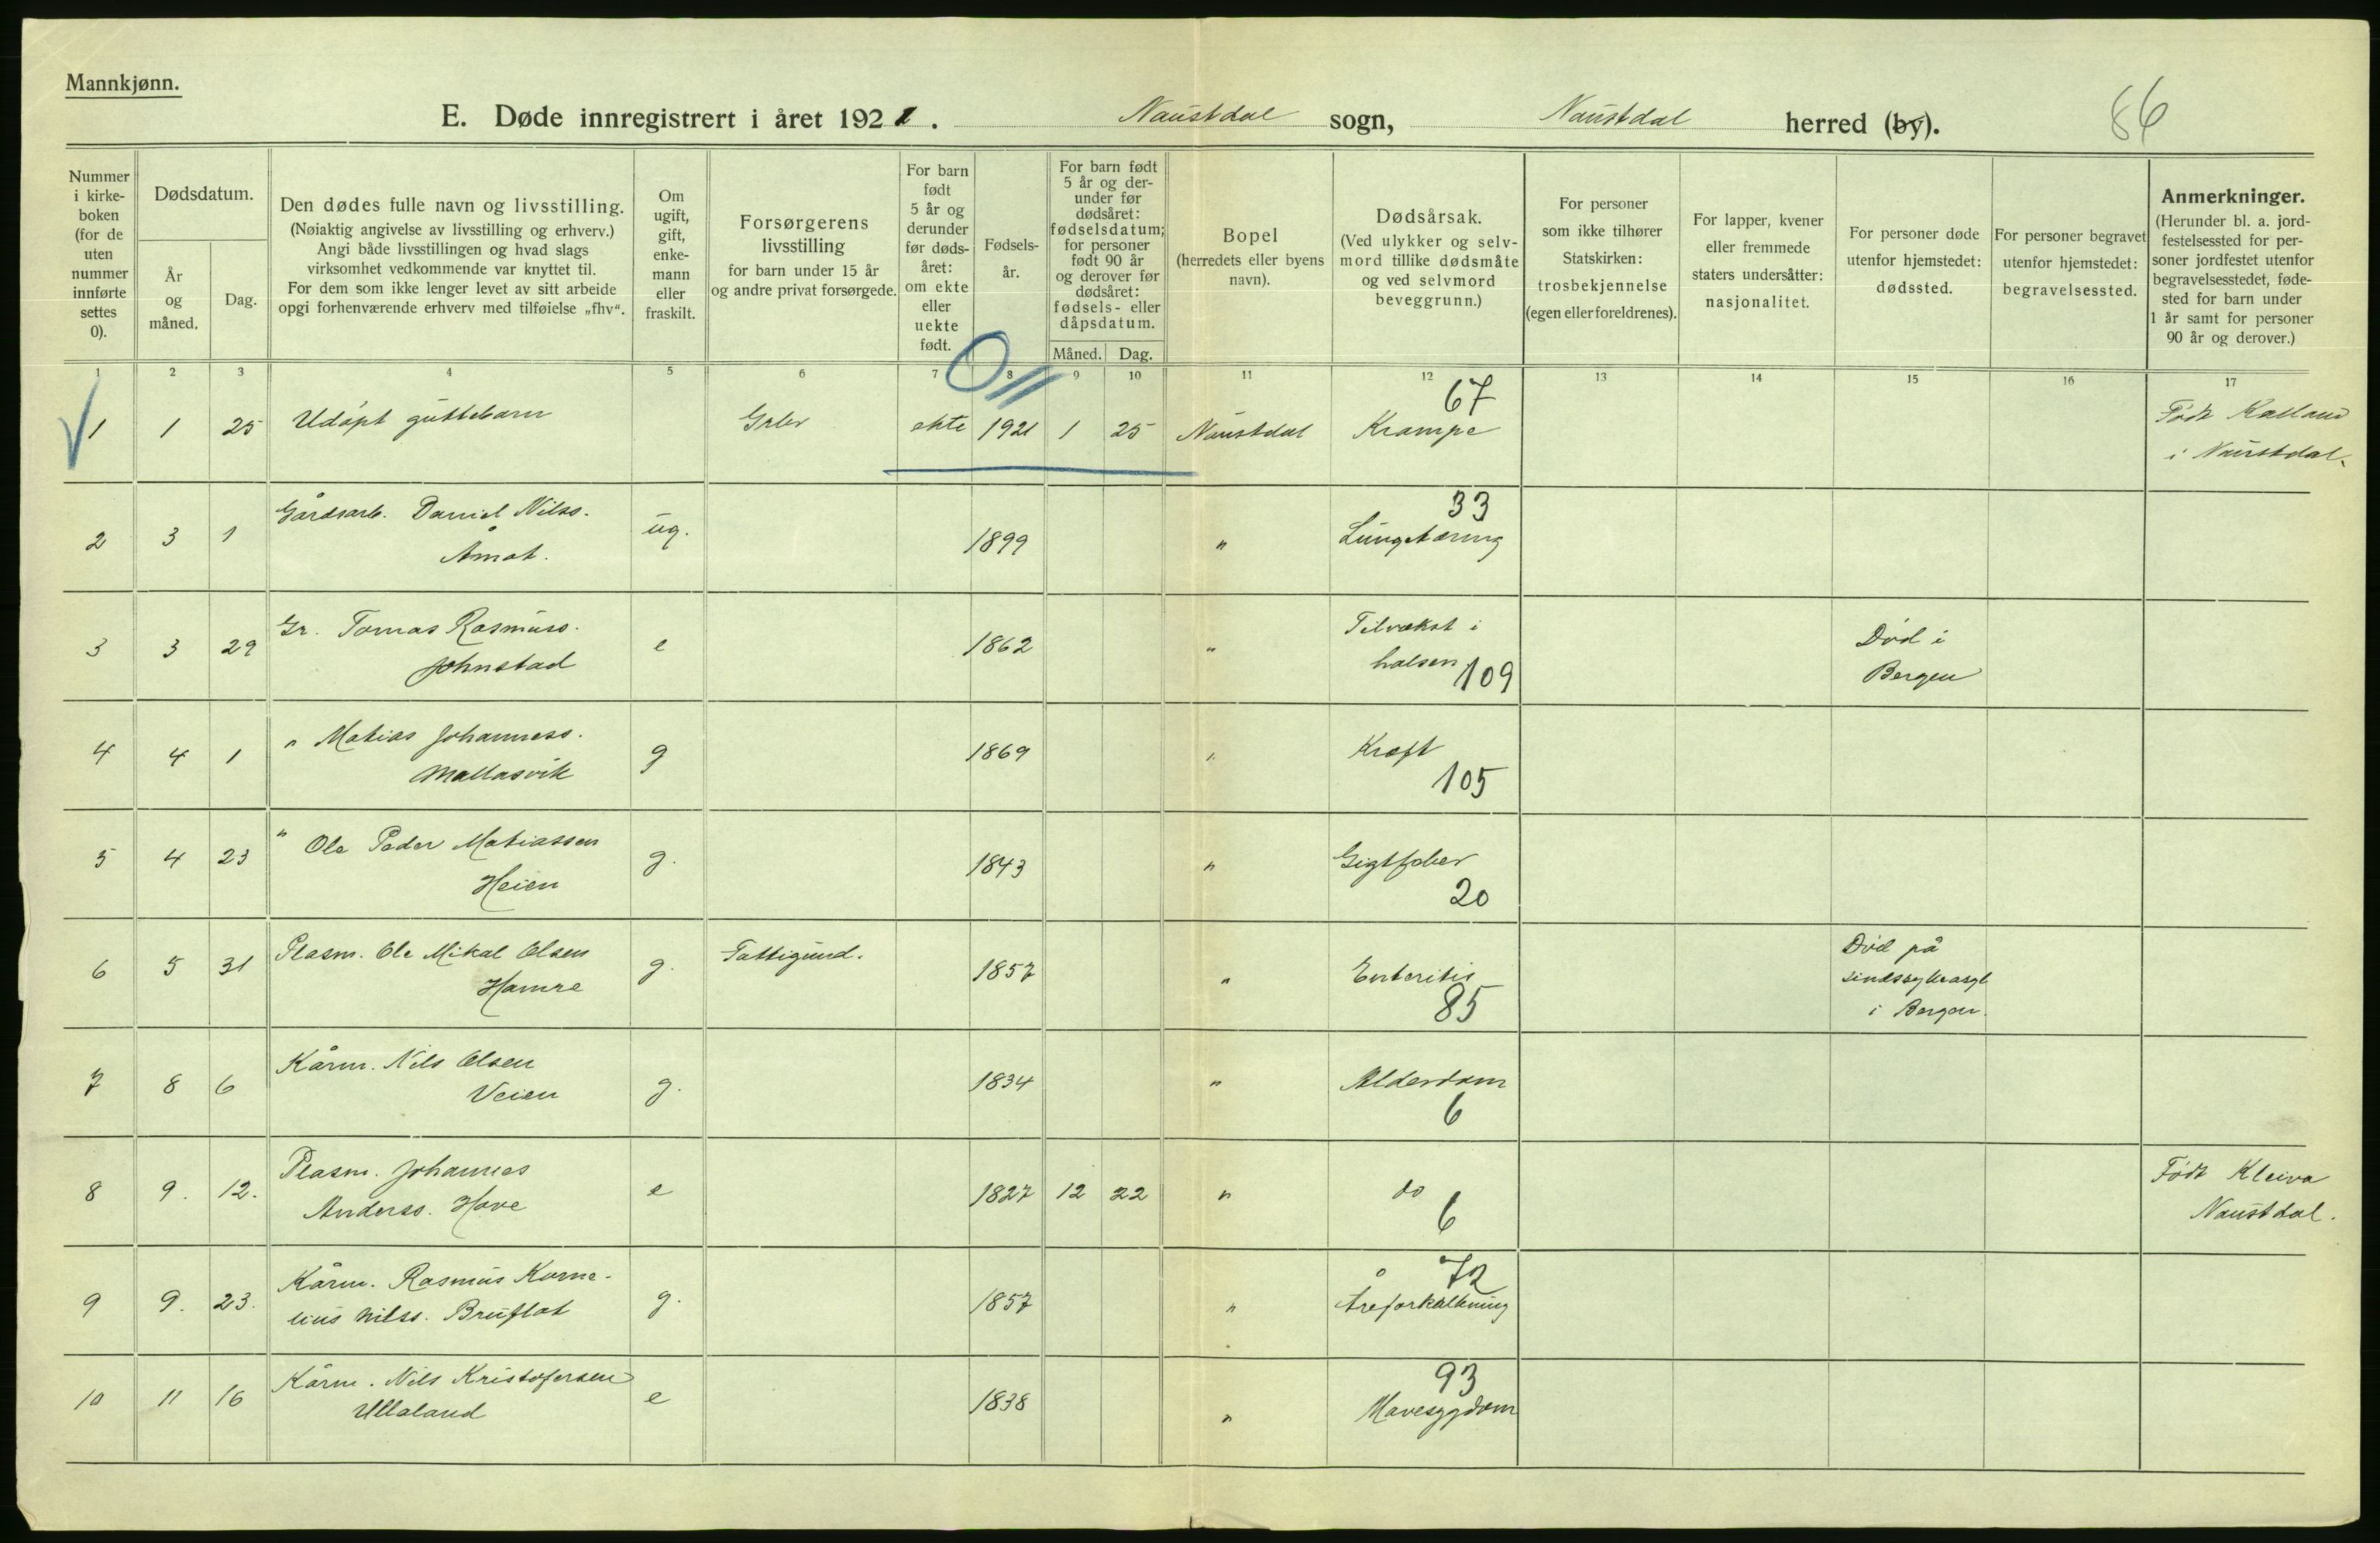 Mannkjønn.
E. Døde innregistrert i året 1921. Naustdal sogn, Naustdal herred (by). 86
Nummer i kirke-boken (for de uten nummer innførte settes 0).
Dødsdatum.
År og måned.
Dag.
Den dødes fulle navn og livsstilling.
(Nøiaktig angivelse av livsstilling og erhverv.)
Angi både livsstillingen og hvad slags
virksomhet vedkommende var knyttet til.
For dem som ikke lenger levet av sitt arbeide
opgi forhenværende erhverv med tilføielse „fhv“.
Om ugift, gift, enke-mann eller fraskilt.
Forsørgerens livsstilling
for barn under 15 år
og andre privat forsørgede.
For barn født 5 år og derunder før døds-året: om ekte eller uekte født.
Fødsels-år.
For barn født 5 år og der-under før dødsåret: fødselsdatum; for personer født 90 år og derover før dødsåret: fødsels- eller dåpsdatum.
Måned. Dag.
Bopel
(herredets eller byens navn).
Dødsårsak.
(Ved ulykker og selv-mord tillike dødsmåte og ved selvmord beveggrunn.)
For personer som ikke tilhører Statskirken: trosbekjennelse (egen eller foreldrenes).
For lapper, kvener eller fremmede staters undersåtter: nasjonalitet.
For personer døde utenfor hjemstedet: dødssted.
For personer begravet utenfor hjemstedet: begravelsessted.
Anmerkninger.
(Herunder bl. a. jord-festelsessted for per-soner jordfestet utenfor begravelsesstedet, føde-sted for barn under 1 år samt for personer 90 år og derover.)
1 2 3 4 5 6 7 8 9 10 11 12 13 14 15 16 17
1 1 25 Udøpt guttebarn Grbr ekte 1921 1 25 Naustdal 67 Krampe Født Kalland
i Naustdal.
2 3 1 Gårdsarb. Daniel Nilss.
Åmot. ug. 1899 " 33 Lungetæring
3 3 29 Gr. Tomas Rasmuss.
Johnstad e 1862 " Tilvækst i
halsen 109 Død i
Bergen
4 4 1 " Matias Johanness.
Mallasvik g 1869 " Kræft
105
5 4 23 " Ole Peder Matiassen
Heien g. 1843 " Gigtfeber
20
6 5 31 Plasm. Ole Mikal Olsen
Hamre g. Fattigund. 1857 " Enteritis
85 Død på
sindssykeasyl
i Bergen.
7 8 6 Kårm. Nils Olsen
Veien g. 1834 " Alderdom
6
8 9. 12. Plasm. Johannes
Anderss. Hove e 1827 12 22 " do
6 Født Kleiva
Naustdal.
9 9. 23. Kårm. Rasmus Korne-
lius Nilss. Bruflot g. 1857 " 72
Åreforkalkning
10 11 16 Kårm. Nils Kristofersen
Ullaland e 1838 " 93
Mavesygdom